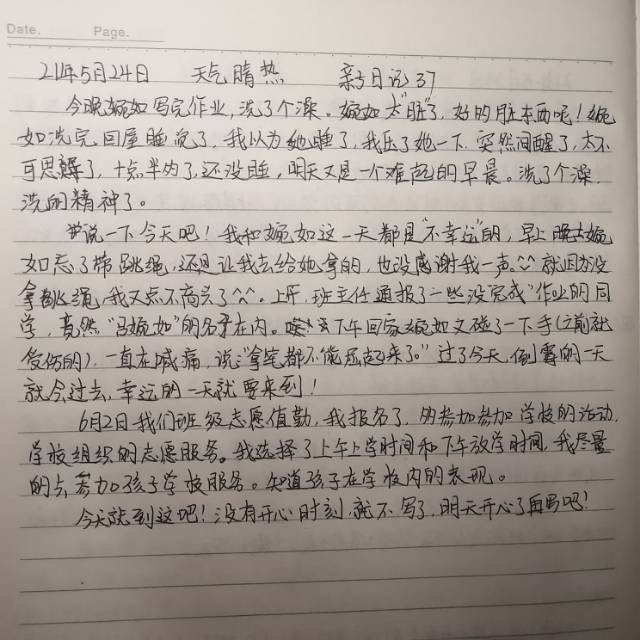 Date.    Page.
21年5月24日 天气晴热 亲子日记37
今晚婉如写完作业,洗了个澡。婉如太"脏"了,好的脏东西呢!婉
如洗完回屋睡觉了,我以为她睡了,我压了她一下,突然间醒了,太不
可思議了,十点半为了,还没睡,明天又是一个难起的早晨。洗了个澡,
洗的精神了。
说一下今天吧!我和婉如这一天都是"不幸运"的,早上婉
如忘了带跳绳,还是让我去给她拿的,也没感谢我一声。^^就因为没
拿跳绳,我又点不高兴了^^。上午,班主任通报了一些没完成"作业的同
学,竟然"冯婉如"的名字在内。唉 下午回家婉如又碰了一下手(之前就
受伤的),一直在喊痛,说"拿笔都不能拿起来了。"过了今天,倒霉的一天
就会过去,幸运的一天就要来到!
6月2日我们班级志愿值勤,我报名了,为参加参加学校的活动,
学校组织的志愿服务。我选择了上午上学时间和下午放学时间,我尽量
的去参加孩子学校服务。知道孩子在学校内的表现。
今天就到这吧!没有开心时刻就不写了,明天开心了再写吧!